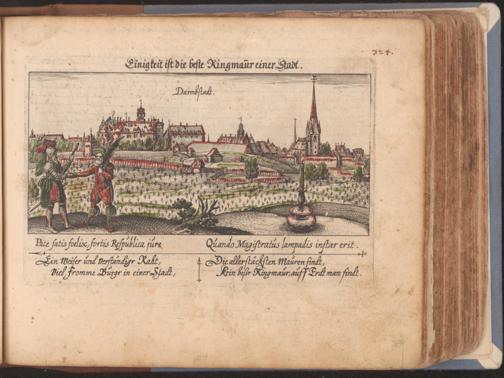 324.
Einigkeit ist die beste Ringmaur einer Stadt.
Darmbstadt.
Pace satis foelix, fortis Respublica jure,
Quando Magistratus lampadis instar erit.
Ein Weiser und verständiger Raht,
Viel fromme Burger in einer Stadt.
Die allerstärcksten Mauren sindt,
Kein besser Ringmaur auff Erdt man findt.